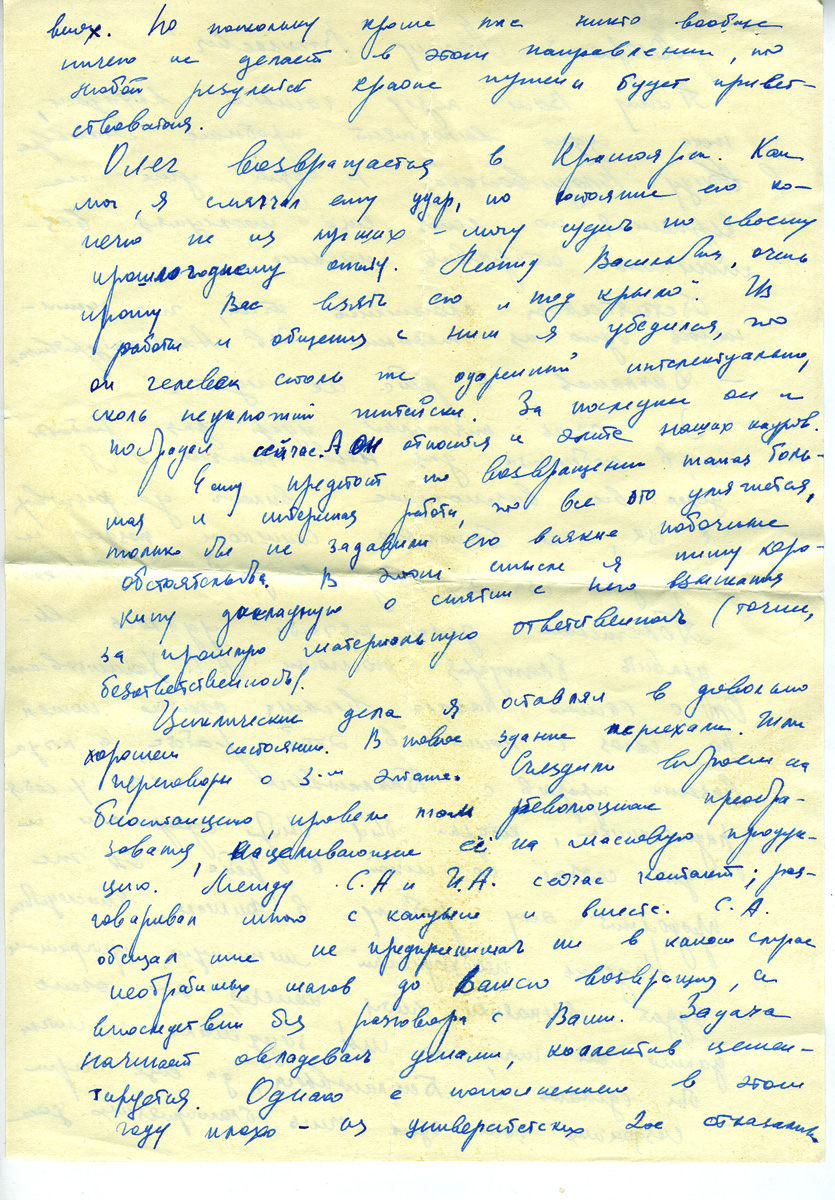 виях. Но поскольку кроме нас никто вообще
ничего не делает в этом направлении, то
любой результат крайне нужен и будет привет-
ствоваться.
Олег возвращается в Красноярск. Как
мог, я смягчал ему удар, но состояние его ко-
нечно не из лучших – могу судить по своему
прошлогоднему опыту. Леонид Васильевич, очень
прошу Вас взять его „под крыло". Из
работы и общения с ним я убедился, что
он человек столь же одаренный интелектуально,
сколь неумложий житейски. За последнее он и
пострадал сейчас. А он относится к элите наших кадров.
Ему предстоит по возвращении такая боль-
шая и интересная работа, что все это уляжется,
только бы не задавили его всякие побочные
обстоятельства. В этом смысле я пишу
докладную о снятии с него взыскания
за прошлую материальную ответственность (точнее,
безответственность).
Циклические дела я оставлял в довольно
хорошем состоянии. В новое здание переехали. Шли
переговоры о 3-м этаже. Съездили втроем на
биостанцию, провели там революционные преобра-
зования, нацеливающие её на массовую продук-
цию. Между С.А и И.А. сейчас контакт; раз-
говаривал много с каждым и вместе. С.А.
обещал мне не предпринимать ни в каком случае
необратимых шагов до Вашего возвращения, и
впоследствии без разговора с Вами. Задача
начинает овладевать умами, коллектив цемен-
тируется. Однако с пополнением в этом
году плохо – из университетских 2ое отказались